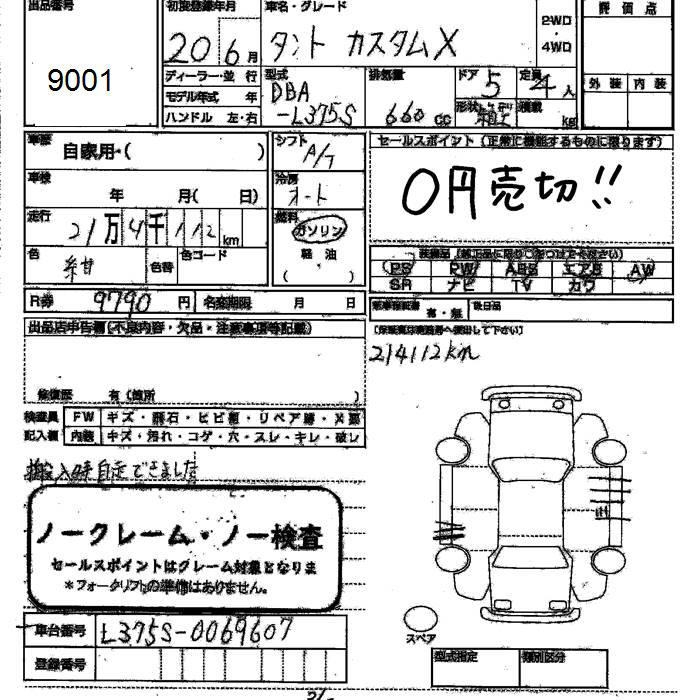 出品番号 初度登録年月 車名・グレード 評価点
9001 20 6月 タント カスタムX 2WD・4WD
ディーラー・並行 型式 排気量 ドア 定員 外装 内装
モデル年式 年 DBA 5 4人
ハンドル 左・右 -L375S 660cc 形状 積載 kg
車歴 自家用・( ) シフト A/T セールスポイント(正常に機能するものに限ります)
車検 年 月( 日) 冷房 オート 0円売切!!
走行 21万4千112km 燃料 ガソリン
色 紺 色替 色コード 軽油 ( )
PS PW ABS エアB AW
SR ナビ TV カワ
R券 9790円 名変期限 月 日 有・無 後日品
出品店申告欄(不良内容・欠品・注意事項等記載)
214112km
修復歴 有(箇所 )
検査員 FW キズ・飛石・ヒビ割・リペア跡・
記入欄 内装 キズ・汚れ・コゲ・穴・スレ・キレ・破レ
搬入時自走できました
ノークレーム・ノー検査
セールスポイントはクレーム対象となりま
*フォークリフトの準備はありません。
車台番号 L375S-0069607
スペア
登録番号 型式指定 類別区分